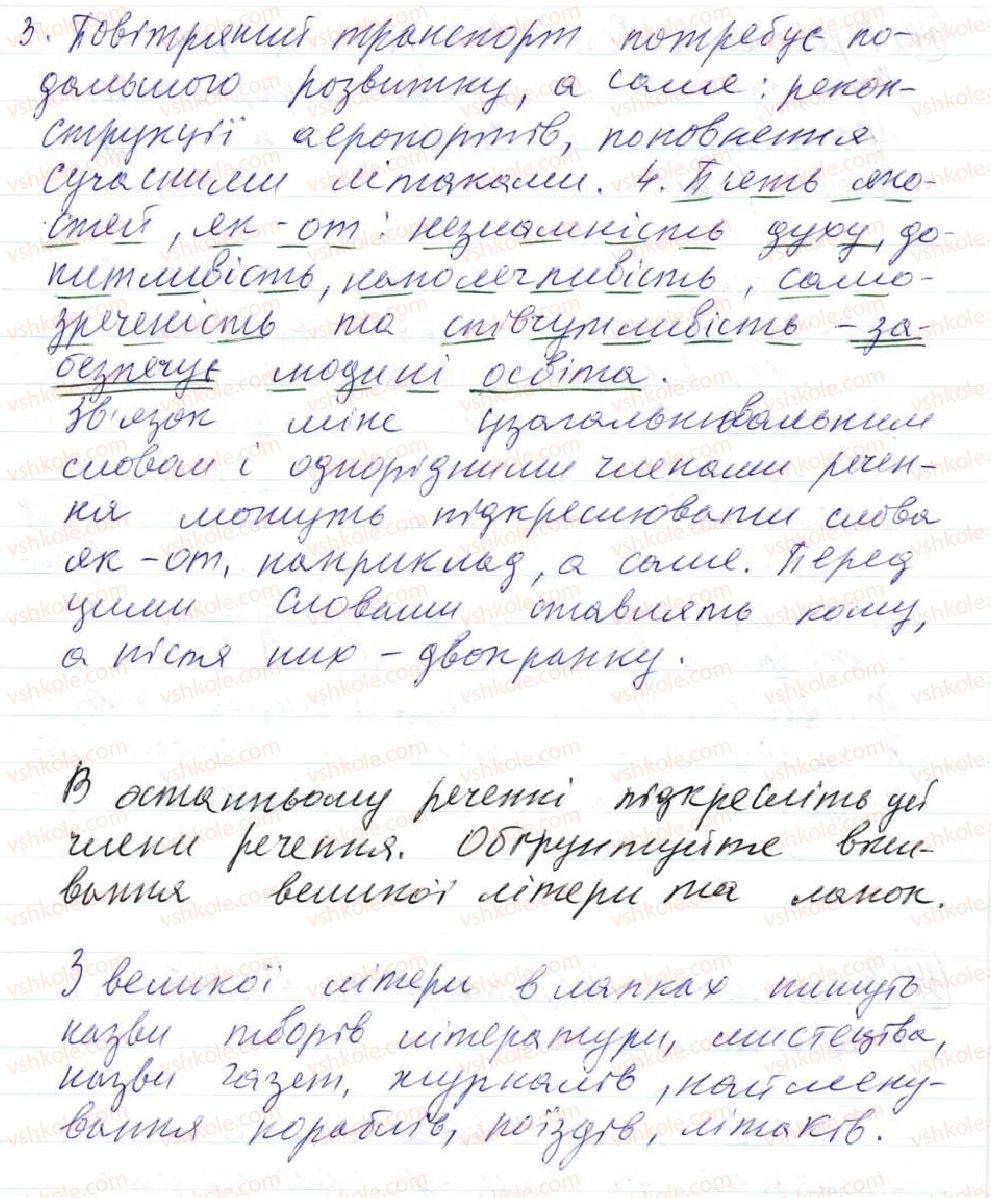 3. Повітряний транспорт потребує по-
дальшого розвитку, а саме: рекон-
струкції аеропортів, поповнення
сучасними літаками. 4. П'ять яко-
стей, як-от: незламність духу, до-
питливість, наполегливість, само-
зреченість та співчутливість – за-
безпечує людині освіта.
Зв'язок між узагальнювальним
словом і однорідними членами речен-
ня можуть підкреслювати слова
як-от, наприклад, а саме. Перед
цими словами ставлять кому,
а після них – двокрапку.
В останньому реченні підкресліть усі
члени речення. Обґрунтуйте вжи-
вання великої літери та лапок.
З великої літери в лапках пишуть
назви творів літератури, мистецтва,
назви газет, журналів, наймену-
вання кораблів, поїздів, літаків.
vshkole.com